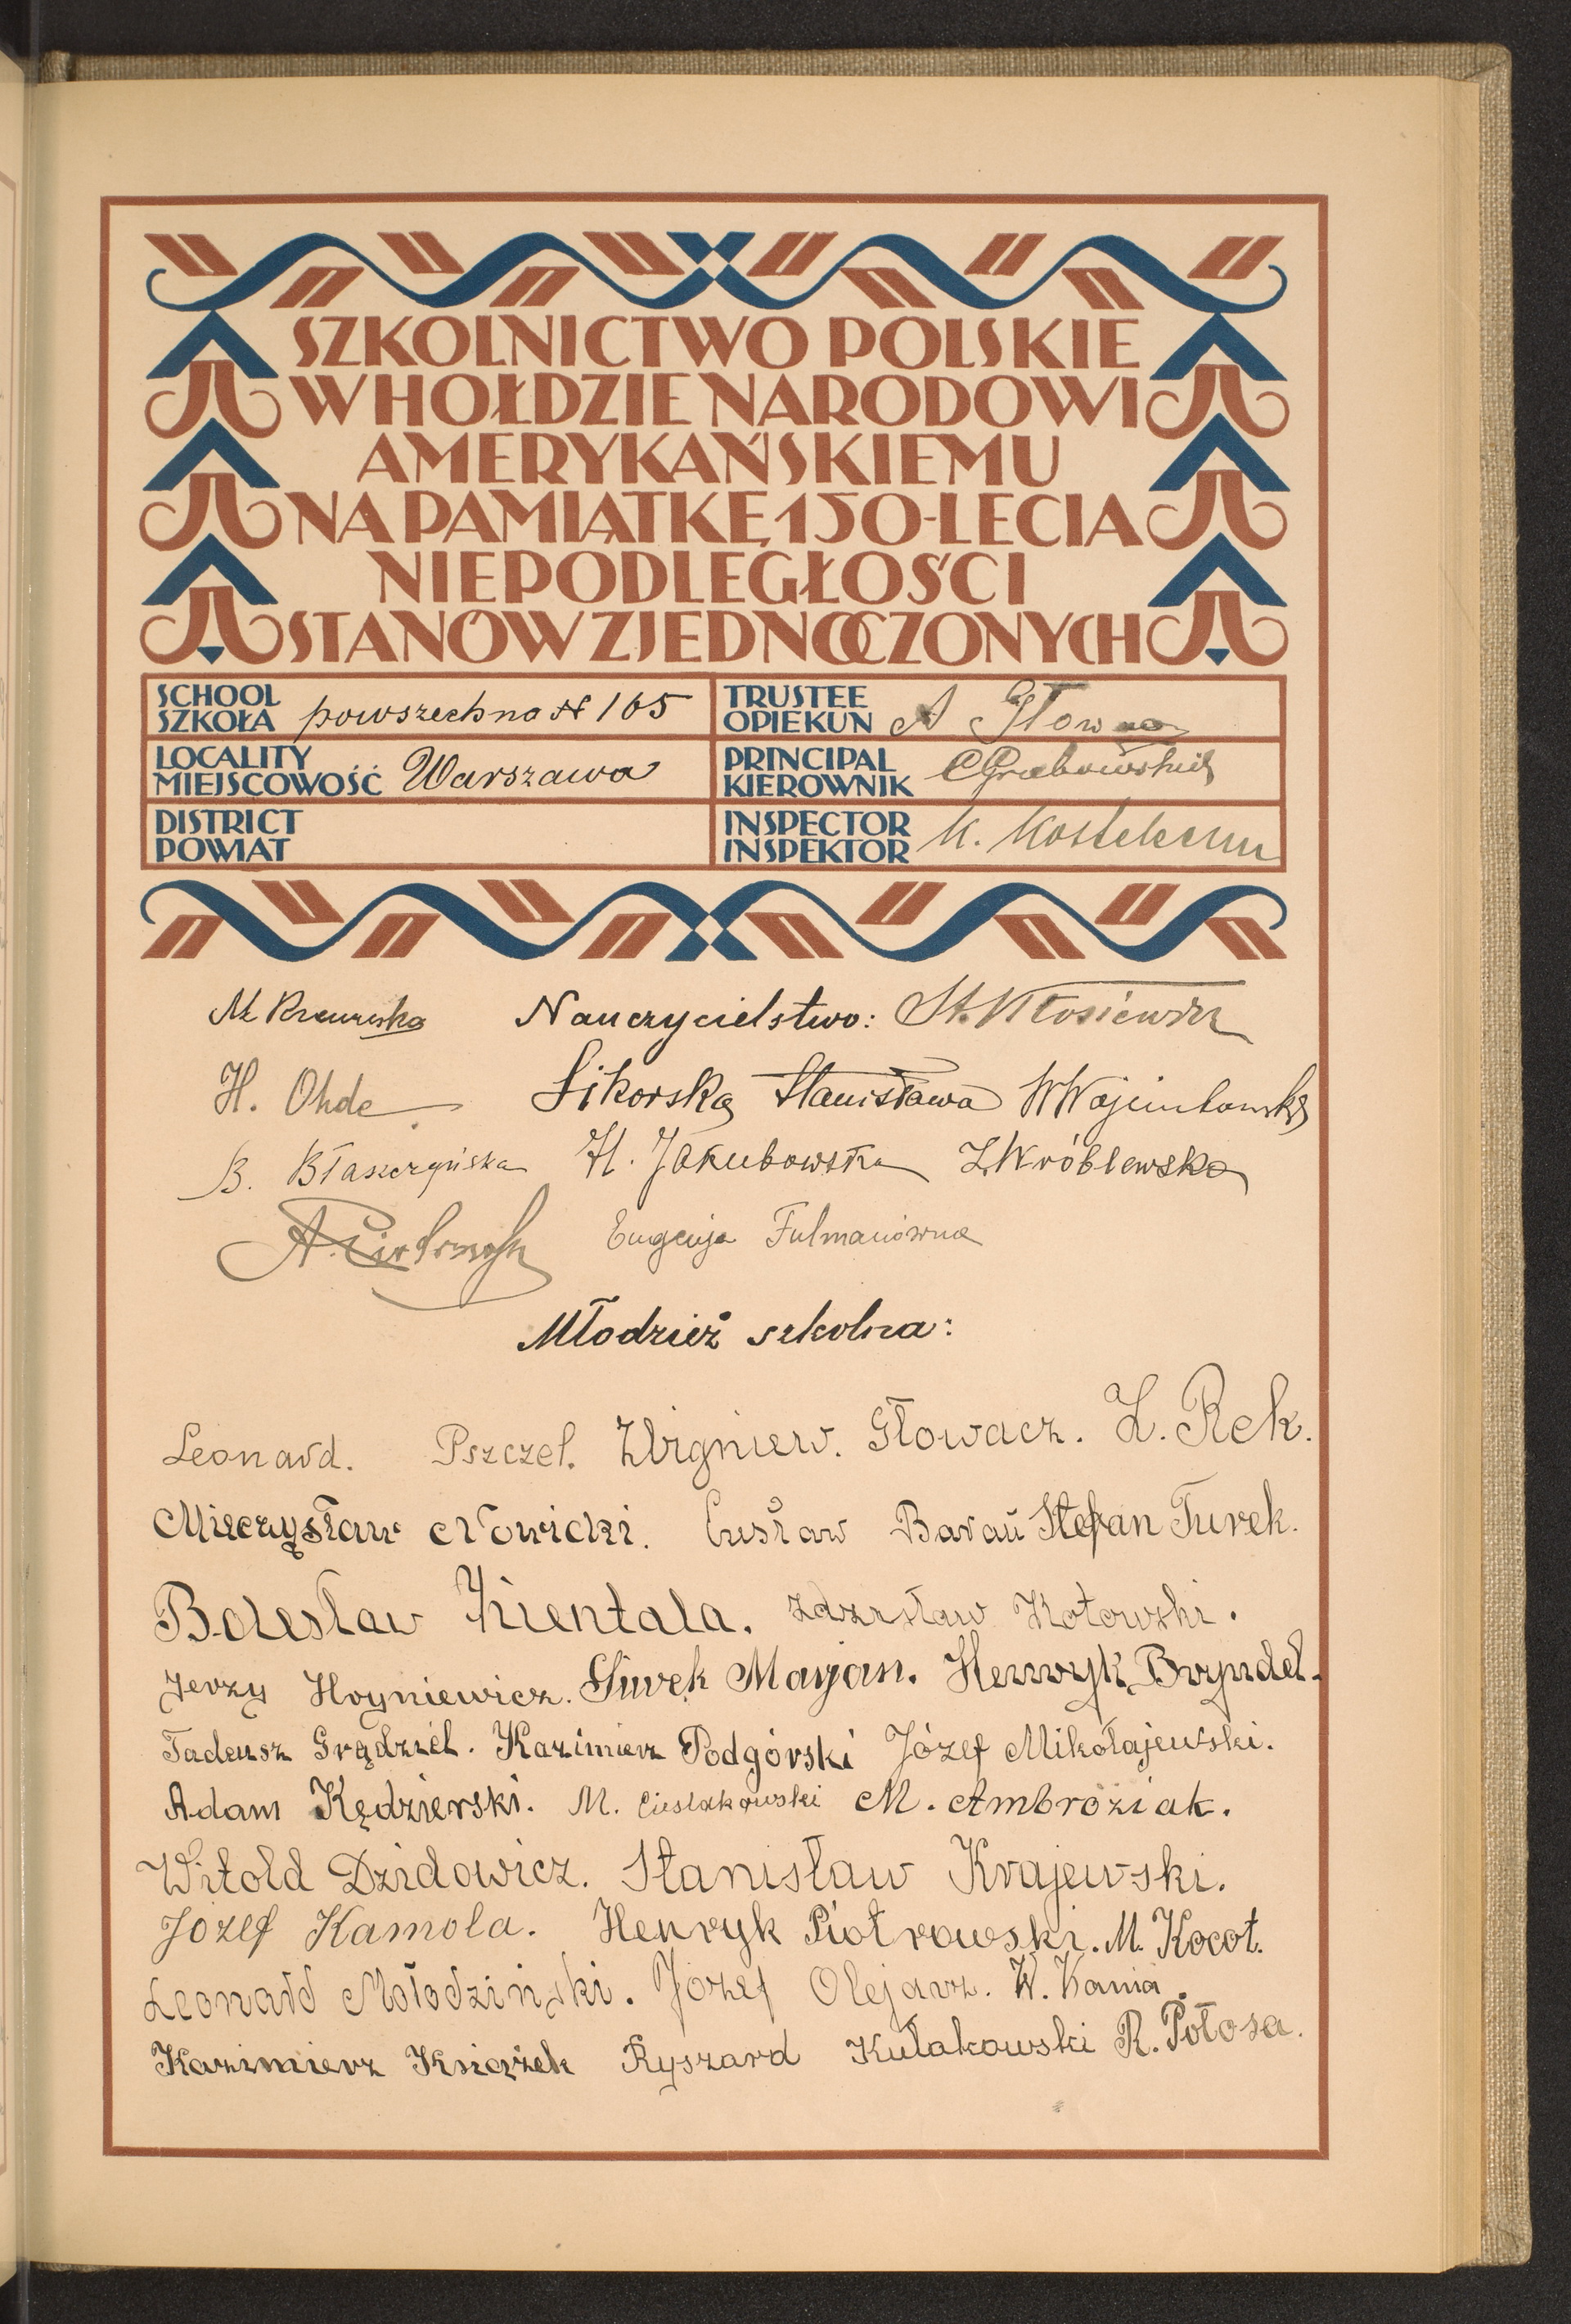 SZKOLNICTWO POLSKIE
W HOŁDZIE NARODOWI
AMERYKAŃSKIEMU
NA PAMIĄTKĘ 150-LECIA
NIEPODLEGŁOŚCI
STANÓW ZJEDNOCZONYCH
SCHOOL
SZKOŁA powszechna № 165
TRUSTEE
OPIEKUN A
LOCALITY
MIEJSCOWOŚĆ Warszawa
PRINCIPAL
KIEROWNIK CGrabowski
DISTRICT
POWIAT
INSPECTOR
INSPEKTOR K.
Nauczycielstwo: St. Kłosiewicz
H. Ohde Sikorska Stanisława
B. Błaszczyńska H. Jakubowska Z Wróblewska
Eugenja Fulmanówna
Młodzież szkolna:
Leonard. Pszczel. Zbigniew. Głowacz. Z. Rek.
Mieczysław Nowicki. Baran Stefan Turek.
Bolesław Kientala. Zdzisław Kotowski.
Jerzy Hryniewicz. Marjan. Henryk Bryndel.
Tadeusz Grądziel. Kazimierz Podgórski Józef Mikołajewski.
Adam Kędzierski. M. Cieslakowski M. Ambroziak.
Witold Dzidowicz. Stanisław Krajewski.
Józef Kamola. Henryk Piotrowski. M. Kocot.
Leonard Mołodziński. Józef Olejarz. W. Kania.
Kazimierz Książek Ryszard Kułakowski R. Połosa.